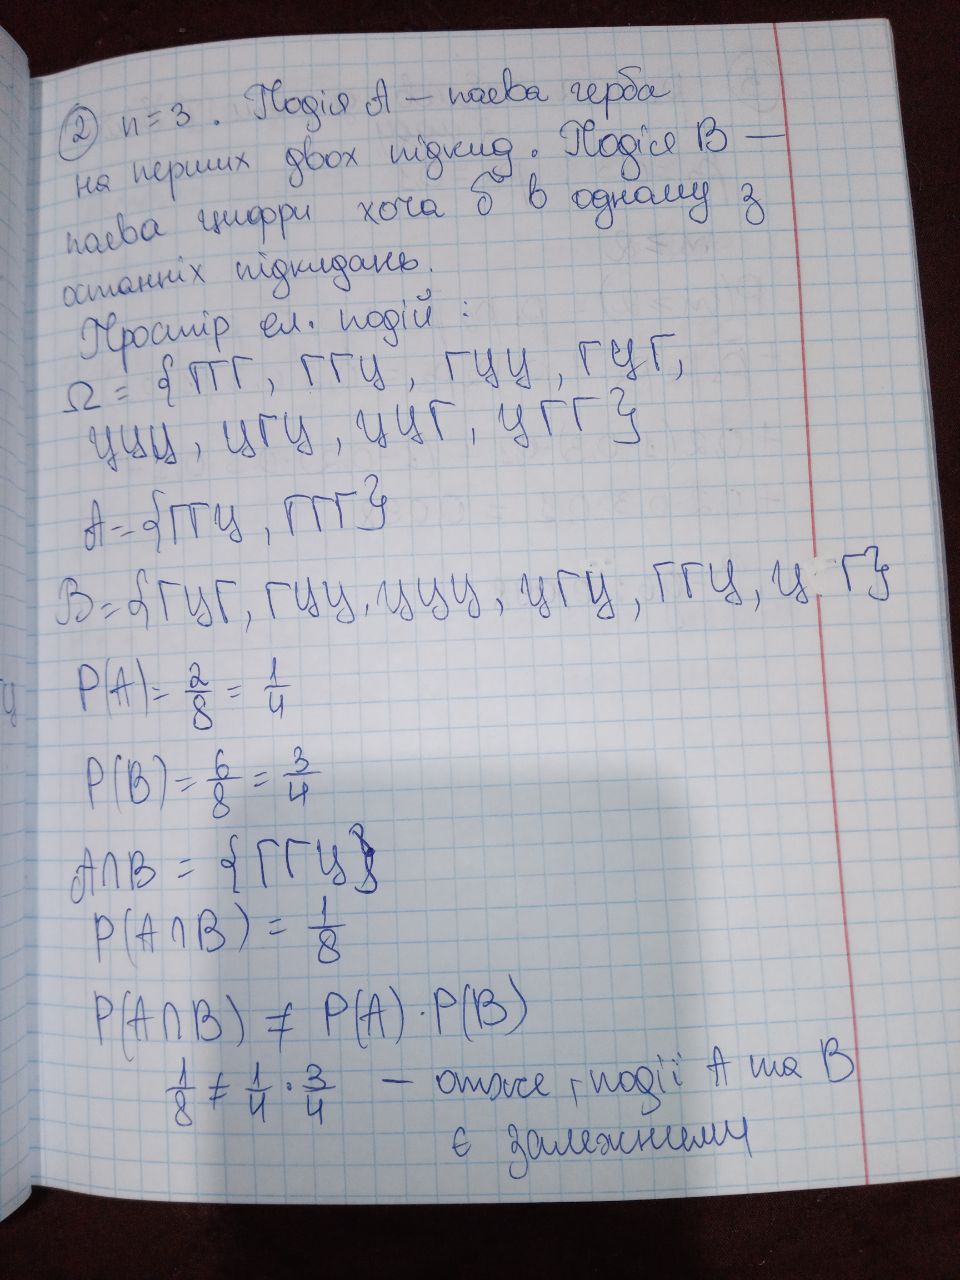 ② n = 3 . Подія А – поява герба
на перших двох підкид. Подія В —
поява цифри хоча б в одному з
останніх підкидань.
Простір ел. подій :
Ω = {ГГГ, ГГЦ, ГЦЦ, ГЦГ,
ЦЦЦ, ЦГЦ, ЦЦГ, ЦГГ}
A = {ГГЦ, ГГГ}
B = {ГЦГ, ГЦЦ, ЦЦЦ, ЦГЦ, ГГЦ, Ц Г}
P(A) = 2/8 = 1/4
P(B) = 6/8 = 3/4
A∩B = {ГГЦ}
P(A∩B) = 1/8
P(A∩B) ≠ P(A)·P(B)
1/8 ≠ 1/4 · 3/4 – отже, події А та В
є залежними